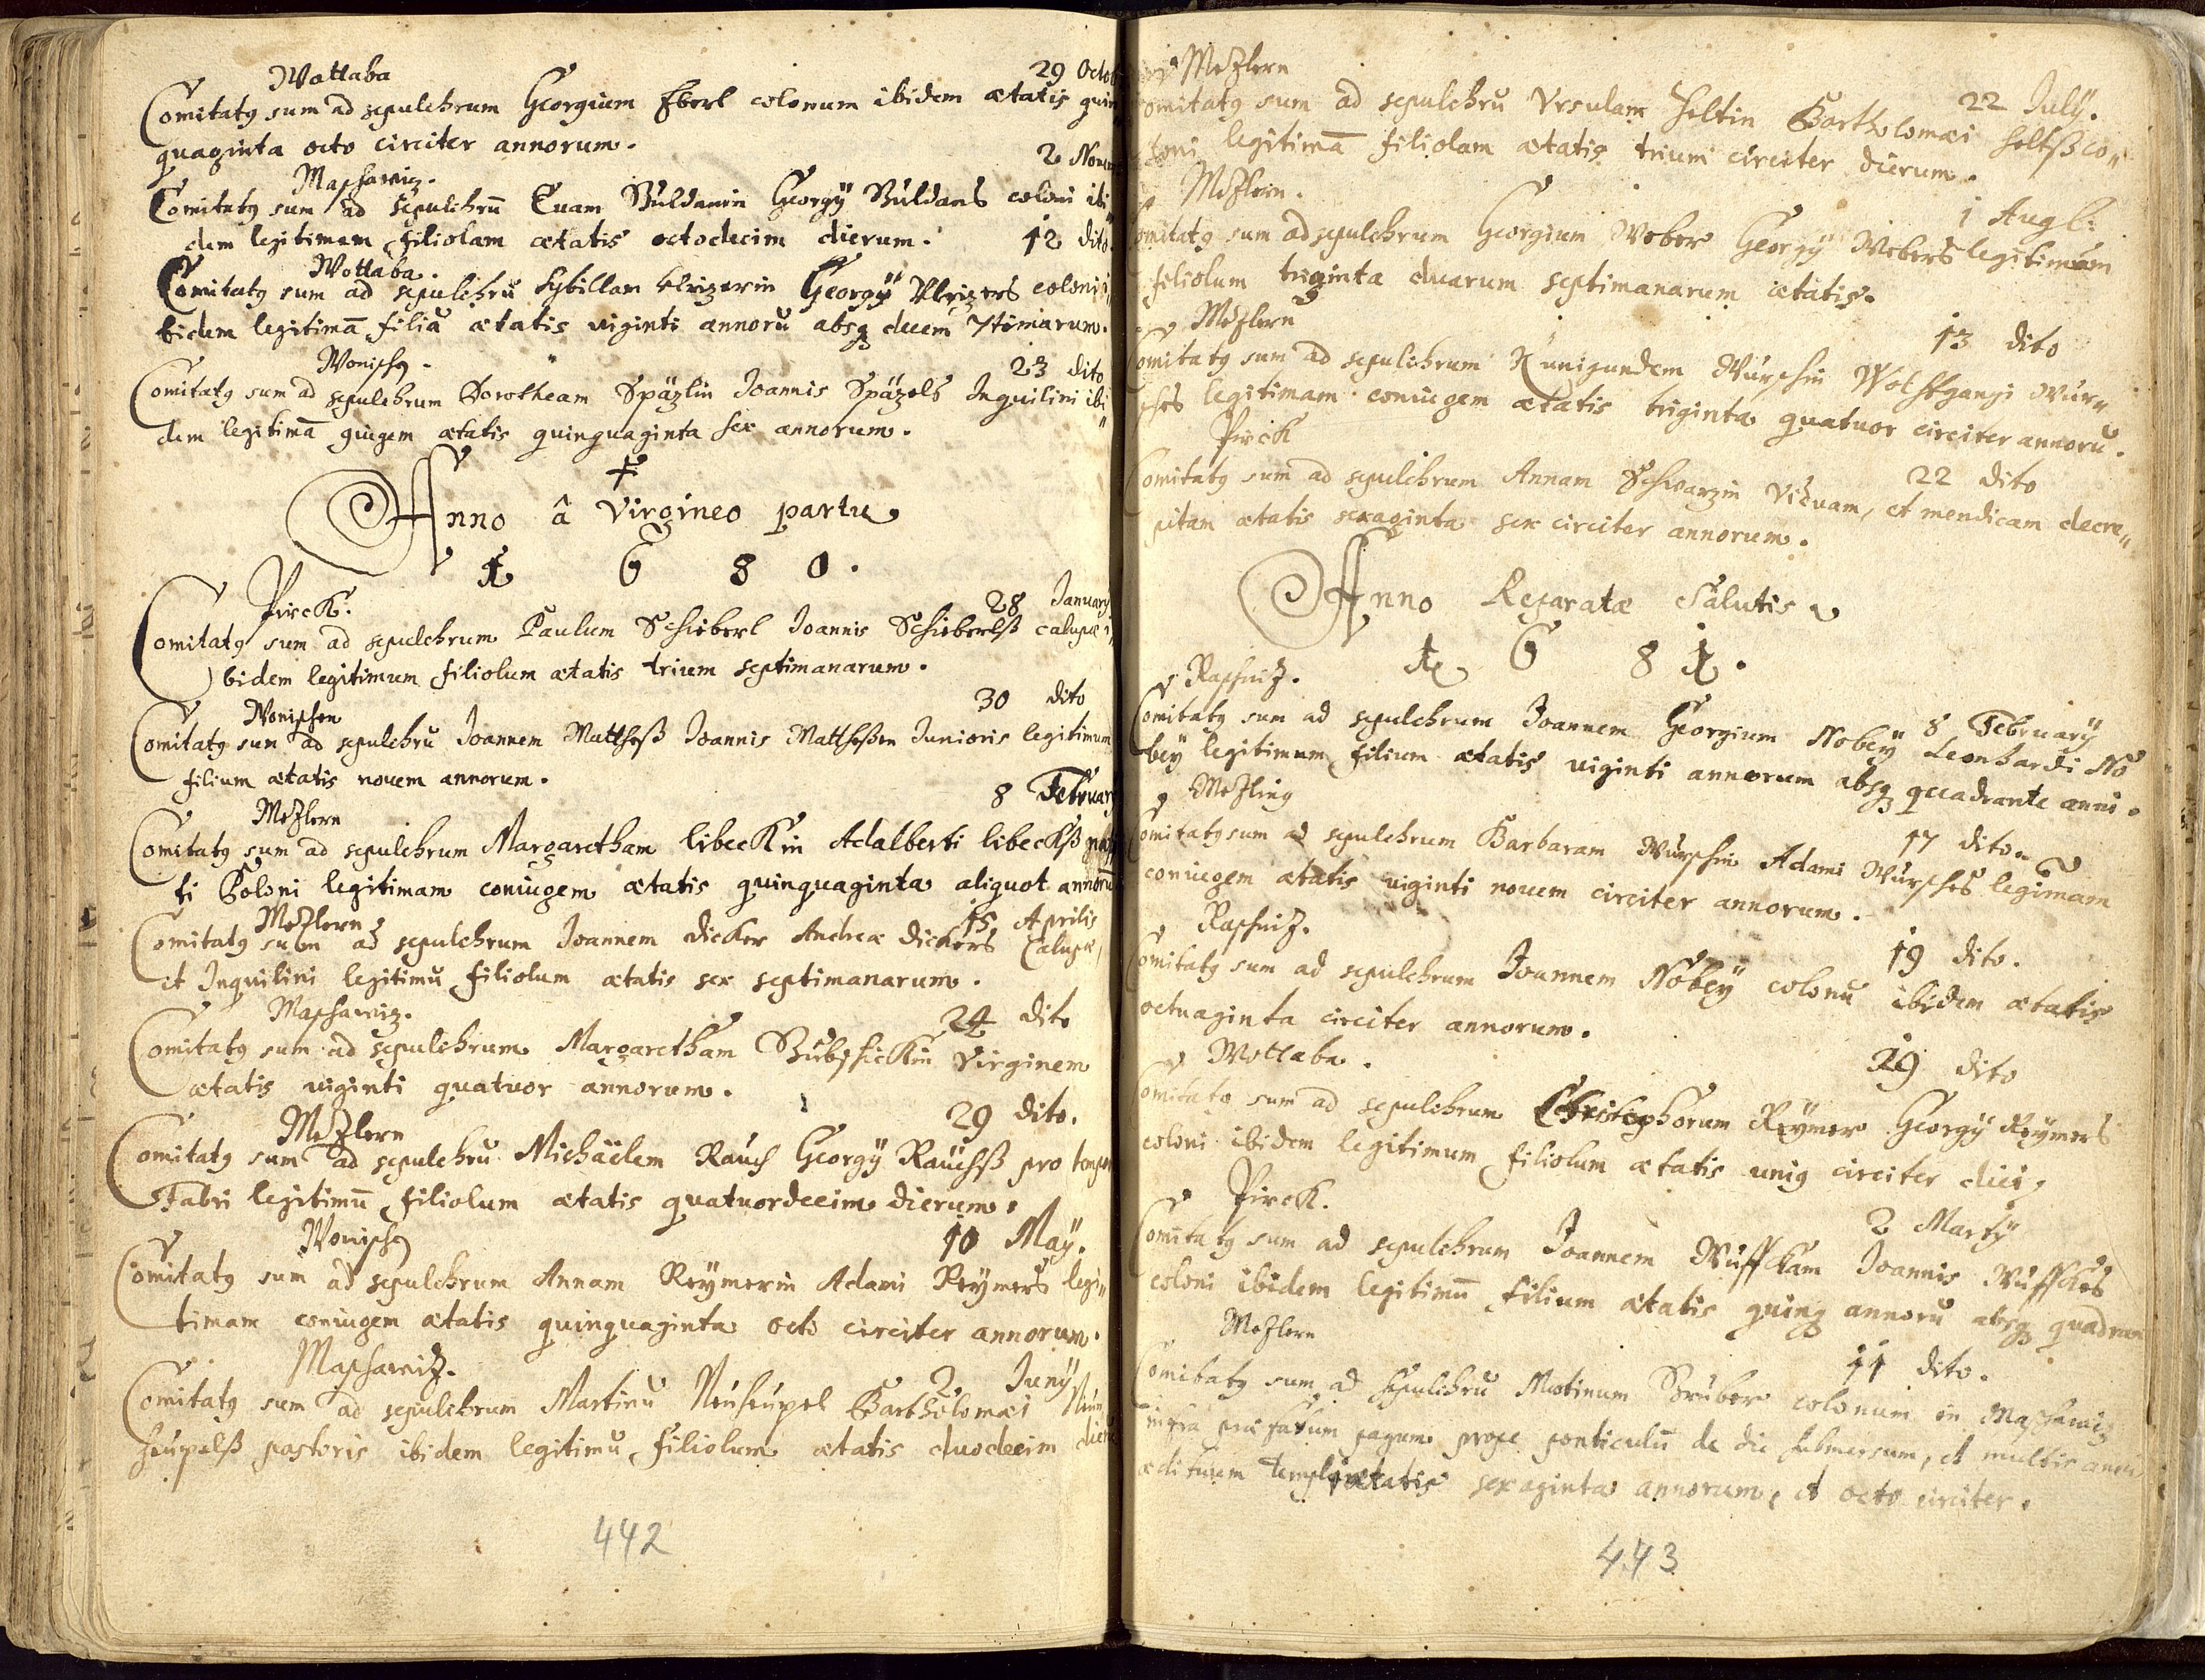 Wottaba
29 Octo
Comitatq sum ad sepulchrum Georgium Eberl colonum ibidem ætatis quin
quaginta octo circiter annorum.
2 Nouem
Comitatq sum ad sepulchrū Euam Buldanin Georgÿ Buldans coloni ibi
dem legitimam filiolam ætatis octodecim dierum.
12 dito
Wottaba.
Comitatq sum ad sepulchrū Sybillam Georgÿ coloni i„
bidem legitimā filiā ætatis viginti annorū absq decem 7timarum.
Wonisch.
23 dito
Comitatq sum ad sepulchrum Dorotheam Späzlin Joannis Späzels Inquilini ibi„
dem legitimā giugem ætatis quinquaginta sex annorum.
Anno â Virgineo partu
1 6 8 0.
Pirck.
28 January
Comitatq sum ad sepulchrum Paulum Schieberl Joannis Schieberlß calupæ i„
bidem legitimum filiolum ætatis trium septimanarum.
30 dito
Wonischen
Comitatq sum ad sepulchrū Joannem Mattheß Joannis Matthessen Junioris legitimum
filium ætatis nouem annorum.
8 February
Mezlern
Comitatq sum ad sepulchrum Margaretham libeckin Adalberti libeckß
ti Coloni legitimam coniugem ætatis quinquaginta aliquot annorū
Mezlern
15 Aprilis
Comitatq sum ad sepulchrum Joannem dicker Andreæ dickers Calupæ,
et Inquilini legitimū filiolum ætatis sex septimanarum.
24 dito
Comitatq sum ad sepulchrum Margaretham Virginem
ætatis viginti quatuor annorum.
Mezlern
29 dito.
Comitatq sum ad sepulchrū Michäelem Rauch Georgÿ Rauchß pro tempore
Fabri legitimū filiolum ætatis quatuordecim dierum.
Wonisch
10 Maÿ.
Comitatq sum ad sepulchrum Annam Reymerin Adami Reymers legi„
timam coniugem ætatis quinquaginta octo circiter annorum.
2 Junÿ
Comitatq sum ad sepulchrum Martinū Neuheupel Bartholomæi Neu„
heupelß pastoris ibidem legitimū filiolum ætatis duodecim dierū
442
Mezlern
22 Julÿ.
Comitatq sum ad sepulchrū Vrsulam Heltin Bartholomæi Heltß co„
loni legitimā filiolam ætatis trium circiter dierum.
Mezlern.
1 Aug
Comitatq sum ad sepulchrum Georgium Weber Georgÿ Webers legitimum
filiolum triginta duarum septimanarum ætatis.
Mezlern
13 dito
Comitatq sum ad sepulchrum Kunigundem Wurschin Wolffgangi Wur„
sches legitimam coniugem ætatis triginta quatuor circiter annorū.
Pirck
22 dito
Comitatq sum ad sepulchrum Annam Schwarzin Viduam, et mendicam decre„
pitam ætatis sexaginta sex circiter annorum.
Anno Reparatæ Salutis
1 6 8 1.
8 February
Comitatq sum ad sepulchrum Joannem Georgium Nobeÿ Leonhardi No
beÿ legitimum filium ætatis viginti annorum absq quadrante anni.
Mezling
17 dito.
Comitatq sum ad sepulchrum Barbaram Wurschin Adami Wursches legimam
coniugem ætatis viginti nouem circiter annorum.
19 dito.
Comitatq sum ad sepulchrum Joannem Nobeÿ colonū ibidem ætatis
octuaginta circiter annorum.
Wottaba.
29 dito
Comitatq sum ad sepulchrum Christophorum Reymer Georgÿ Reymers
coloni ibidem legitimum filiolum ætatis uniq circiter diei.
Pirck.
2 Martÿ
Comitatq sum ad sepulchrum Joannem Joannis
coloni ibidem legitimū filium ætatis quinq annorū absq quadran
Mezlern
11 dito.
Comitatq sum ad sepulchrū colonum in
infra præfatum pagum prope ponticulū de die submersum, et multis annis
ædituum templi ætatis sexaginta annorum, et octo circiter.
443